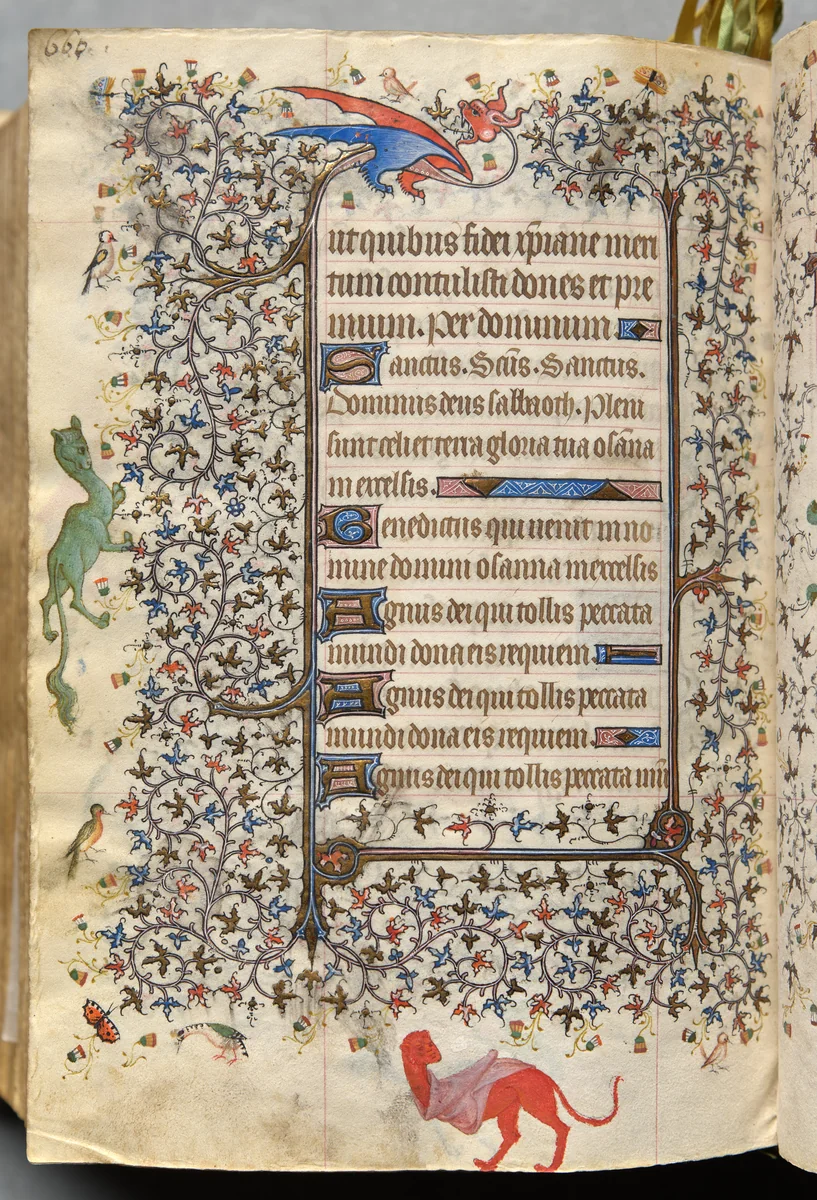 660
ut quibus fidei xp̅iane meri
tum contulisti dones et pre
mium. Per dominum
Sanctus. Sc̅us. Sanctus.
Dominus deus sabbaoth. Pleni
sunt celi et terra gloria tua osa̅na
in excelsis.
Benedictus qui uenit in no
mine domini osanna in excelsis
Agnus dei qui tollis peccata
mundi dona eis requiem
Agnus dei qui tollis peccata
mundi dona eis requiem.
Agnus dei qui tollis peccata